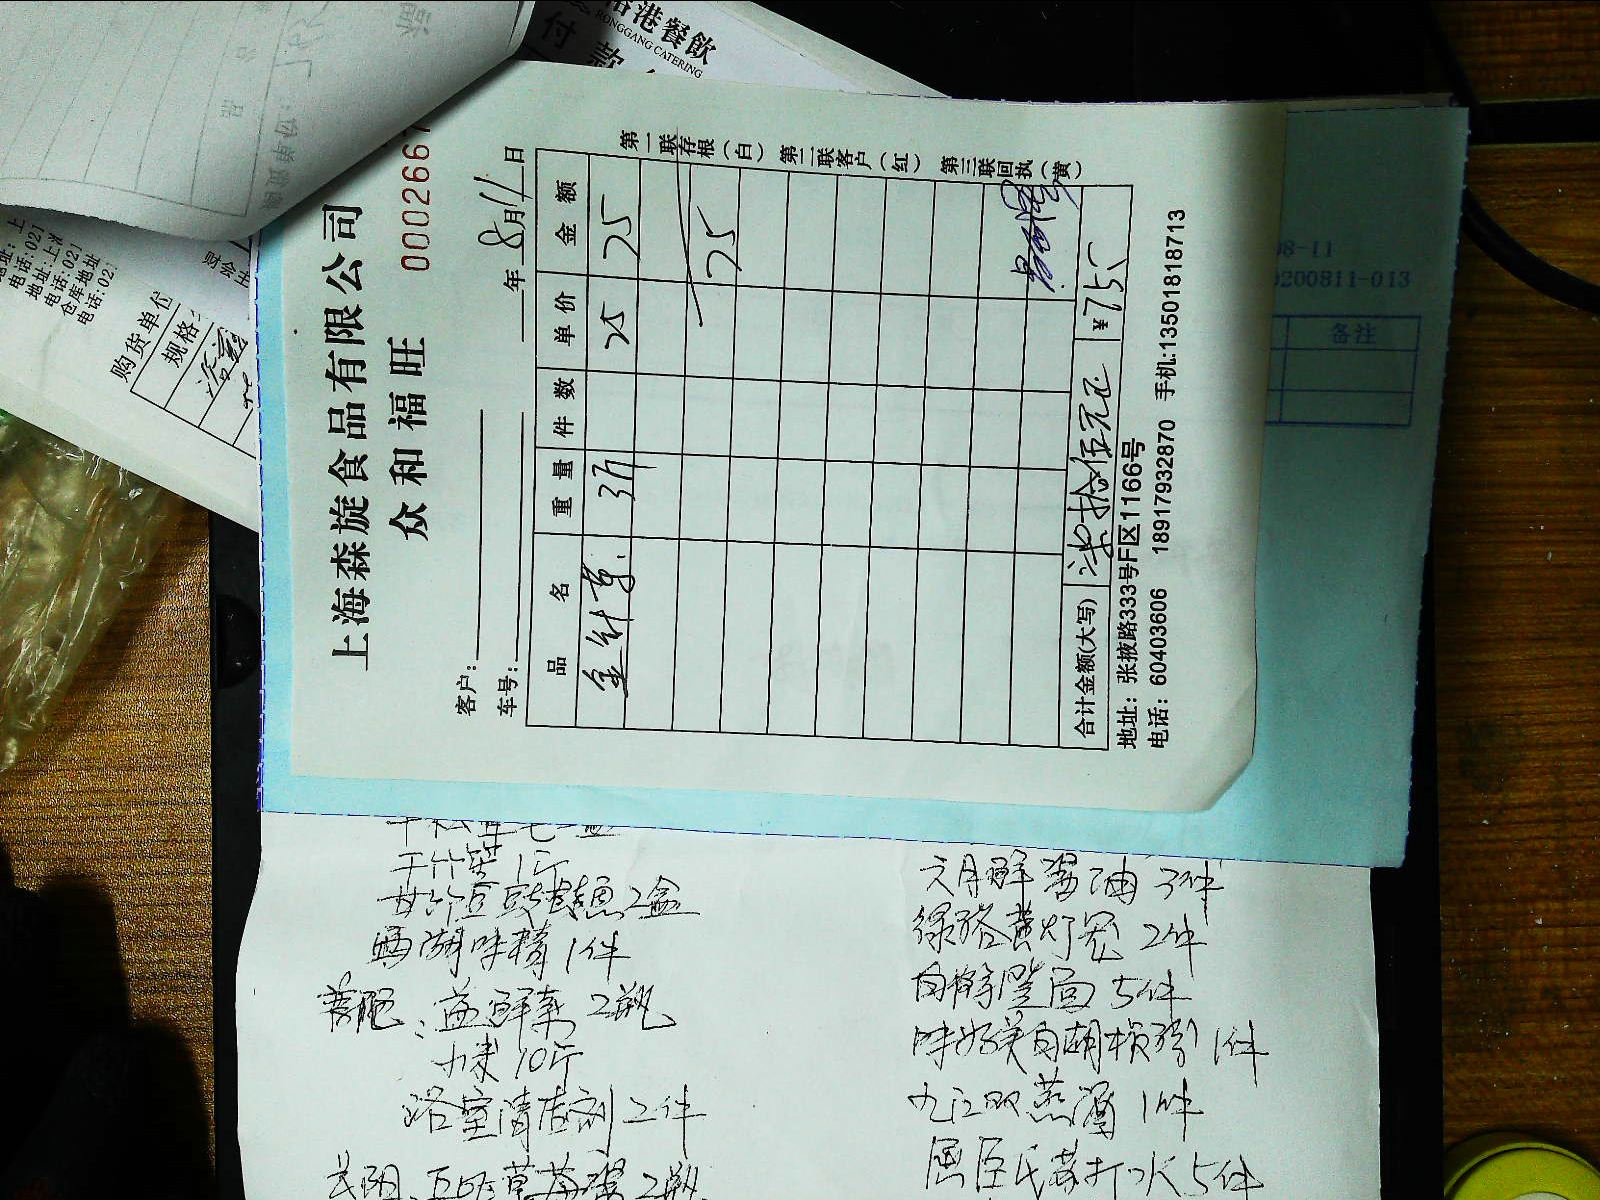 港餐飲
RONGGANG CATERING
付款
购货单位
规格
上海森旋食品有限公司
众和福旺
0002667
年8月11日
客户:
车号:
品名 重量 件数 单价 金额
金针草 3斤 25 75
75
合计金额(大写) 柒拾伍元正 ¥75
第一联存根(白) 第二联客户(红) 第三联回执(黄)
地址: 张掖路333号F区1166号
电话: 60403606 18917932870 手机:13501818713
08-11
0200811-013
备注
干竹笙1斤
甘竹豆豉鲮鱼2盒
西湖味精1件
益鲜素2瓶
10斤
浴室清洁剂2件
草莓酱2瓶
六月鲜酱油3件
2件
5件
味好美白胡椒粉1件
九江双蒸酒1件
屈臣氏苏打水5件